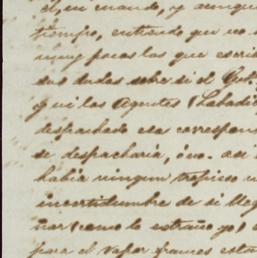 el, en cuando, y aunque
tiempo, entiendo que no s
muy pocas las que escrib
sus dudas sobre si el
que los Agentes (Labadi
despachado esa correspons
se despacharia, ó no. asi
habia ningun tropiezo
incertidumbre de si lleg
ñar (como lo estraño yo)
para el vapor frances esta